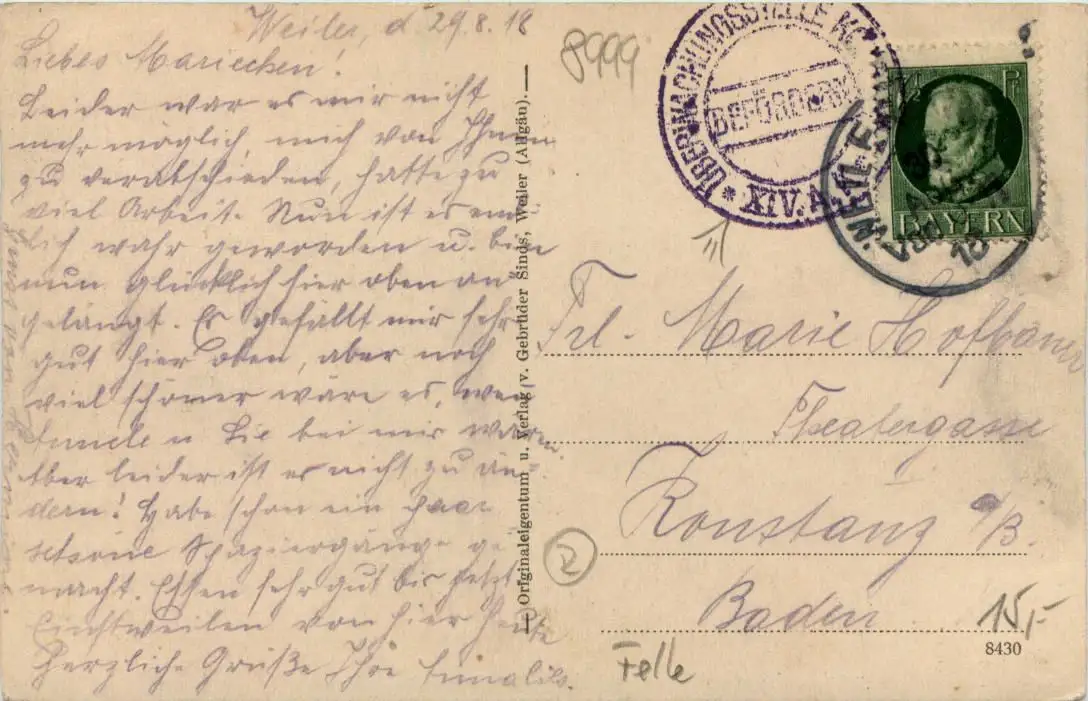 Weiler, d 29.8.18
Liebes Mariechen!
Leider war es mir nicht
mehr möglich mich von Ihnen
zu verabschieden, hatte zu
viel Arbeit. Nun ist es end-
lich wahr geworden u. bin
nun glücklich hier oben an-
gelangt. Es gefällt mir sehr
gut hier oben, aber noch
viel schöner wäre es, wen
u Sie bei mir wären.
Aber leider ist es nicht zu än-
dern! Habe schon ein paar
schöne Spaziergänge ge
macht. Essen sehr gut bis jetzt
Einstweilen von hier heute
herzliche Grüße Ihre
Originaleigentum u. Verlag v. Gebrüder Sinds, Weiler (Allgäu).
8999
ÜBERWACHUNGSSTELLE
BEFÖRDERN
XIV. A
WEILER
BAYERN
Frl. Marie Hofbauer
Theatergasse
Konstanz a/B.
Baden
2
15,-
8430
Felle